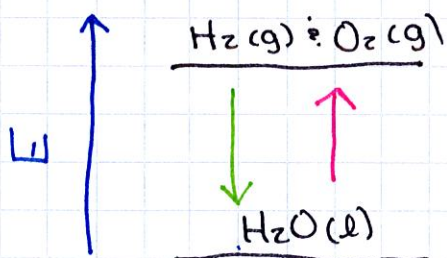 H₂(g) & O₂(g)
E
H₂O(l)